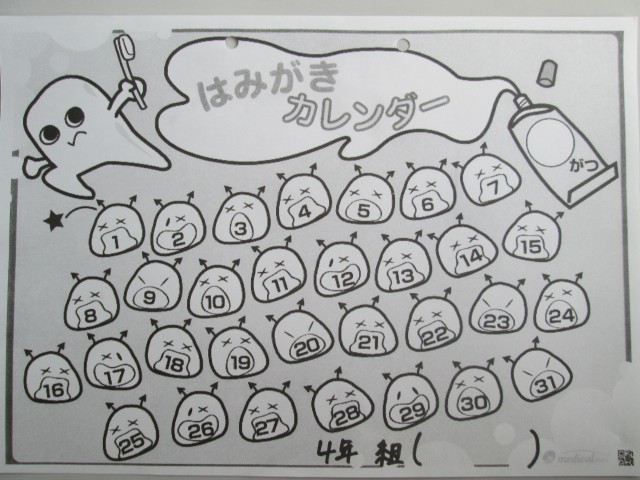 はみがき
カレンダー
がつ
1 2 3 4 5 6 7
8 9 10 11 12 13 14 15
16 17 18 19 20 21 22 23 24
25 26 27 28 29 30 31
4年 組( )